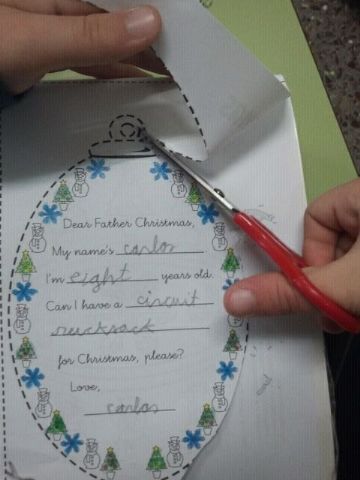 Dear Father Christmas,
My name's carlos
I'm eight years old.
Can I have a circuit
rucksack
for Christmas, please?
Love,
carlos